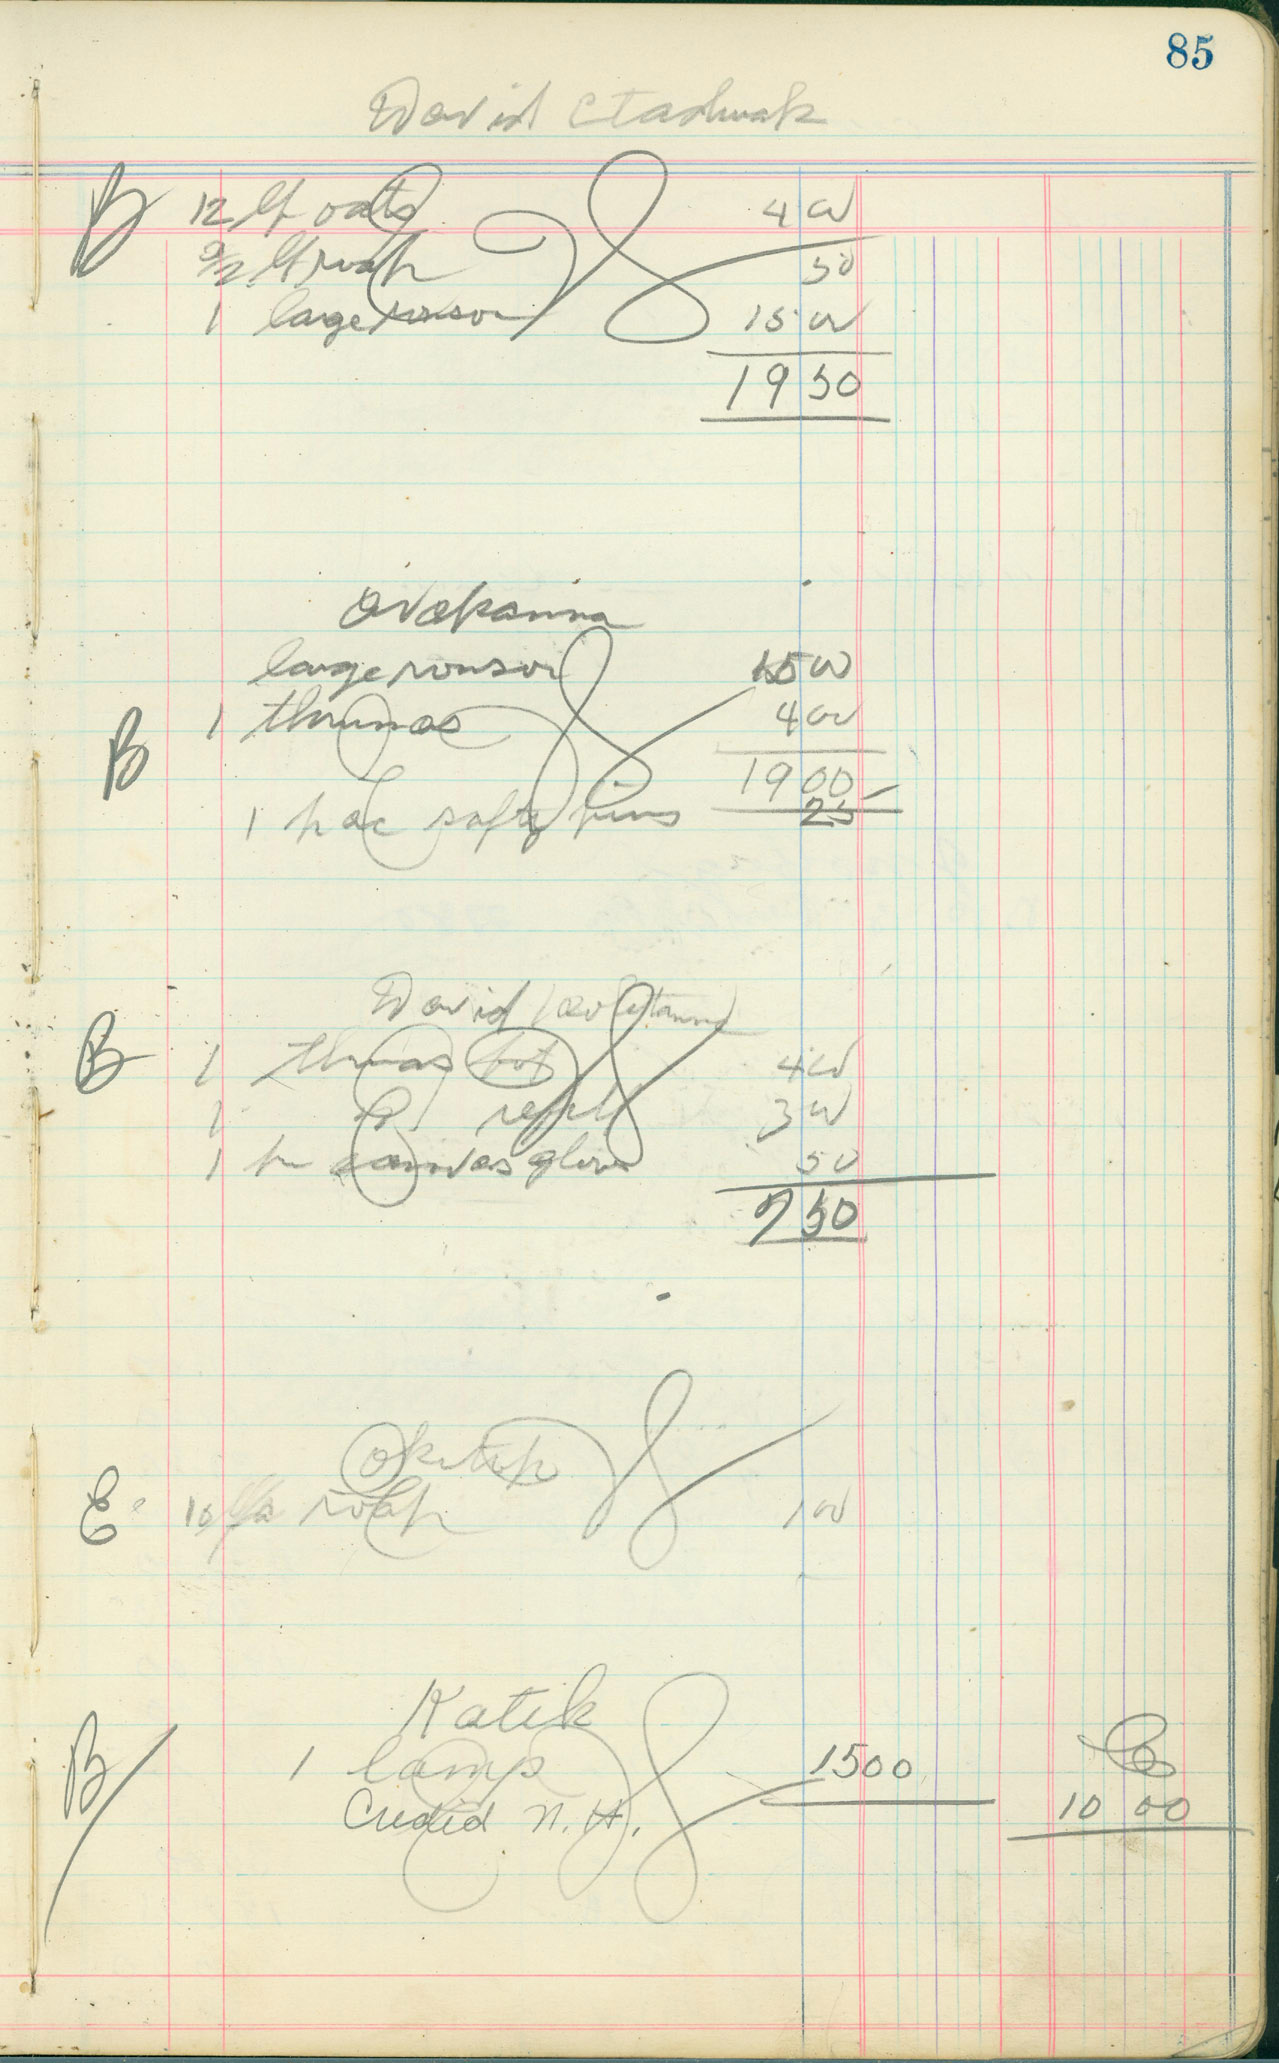 85
David Etadwak
B 12 lf oats 4 00
2/2 lf 50
1 large ronson 15 00
19 50
Ovokanna
large ronson 15 00
1 thrumos 4 00
B 19 00
1 pac safty pins 25
David
B 1 thrmas bot 4 00
1 refill 3 00
1 pr canvas glove 50
7 50
Okituk
E 10 1 00
Katik
B 1 lamp 15 00 Co
Credid N.H. 10 00